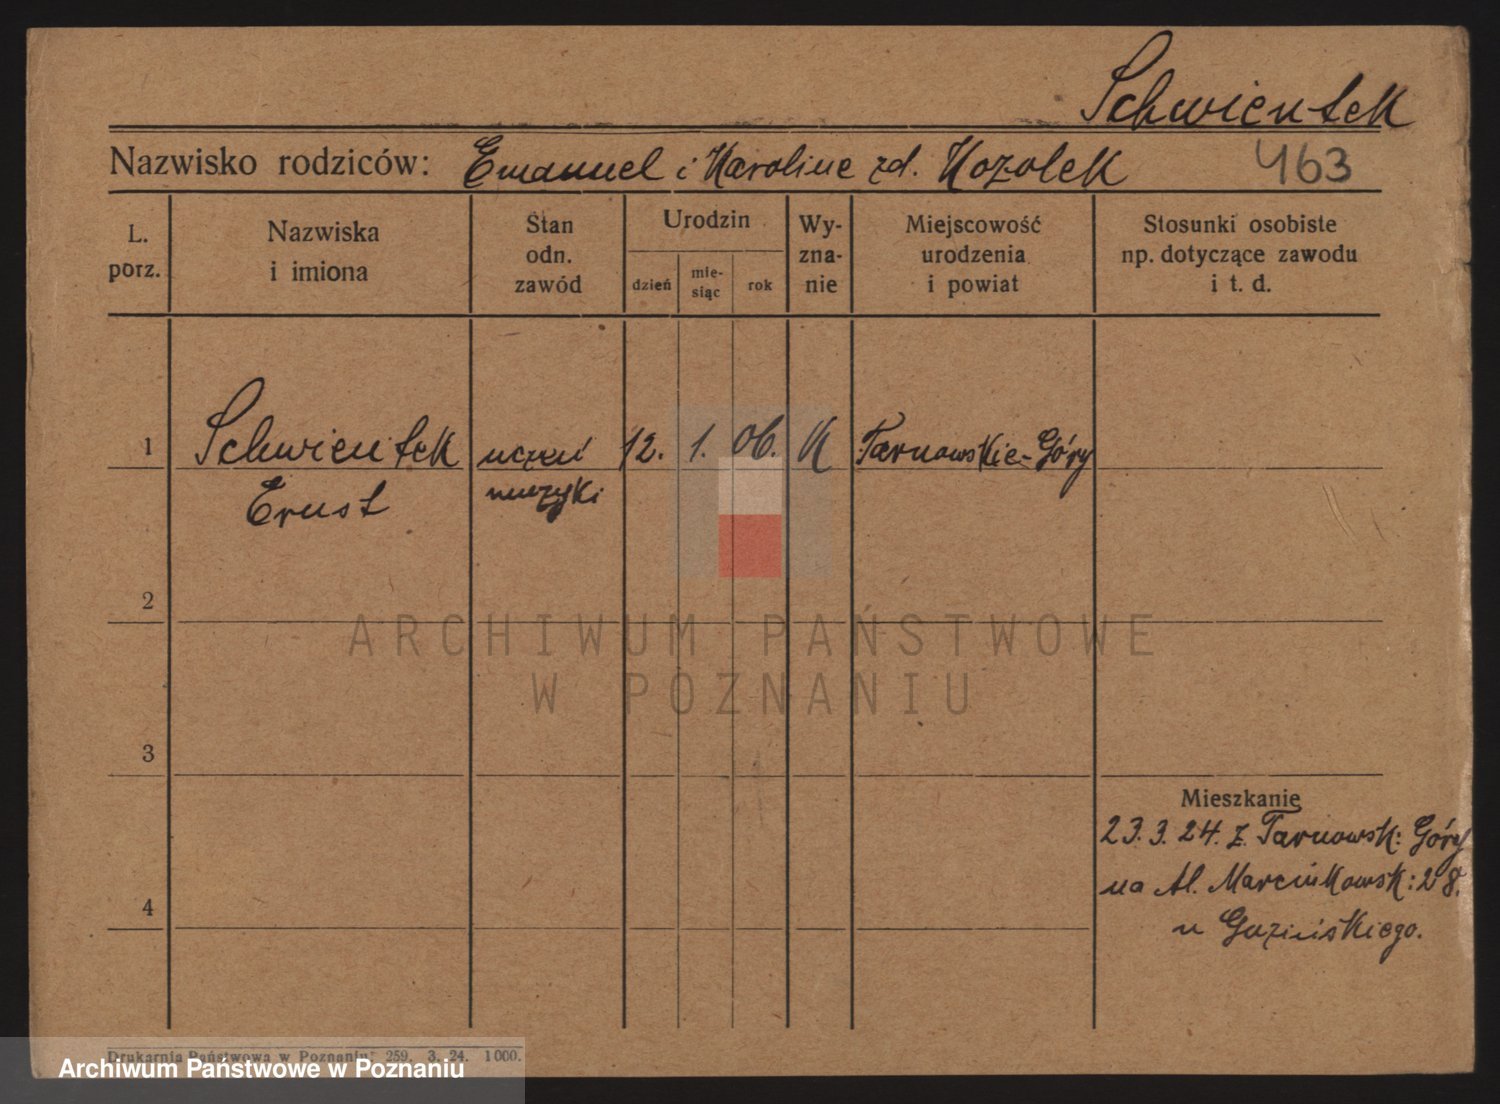 Schwientek
Nazwisko rodziców: Emanuel i Karoline zd. Kozolek 463
L. porz.
Nazwiska i imiona
Stan odn. zawód
Urodzin
dzień
mie-siąc
rok
Wy-zna-nie
Miejscowość urodzenia i powiat
Stosunki osobiste np. dotyczące zawodu i t. d.
1 Schwientek uczeń 12. 1. 06. K Tarnowskie-Góry
Ernst muzyki
2
ARCHIWUM PAŃSTWOWE
W POZNANIU
3
Mieszkanie
23.3.24. z Tarnowsk: Góry
na Al. Marcinkowsk: 28.
4
u Guzińskiego.
Drukarnia Państwowa w Poznaniu 259. 3. 24. 1000.
Archiwum Państwowe w Poznaniu